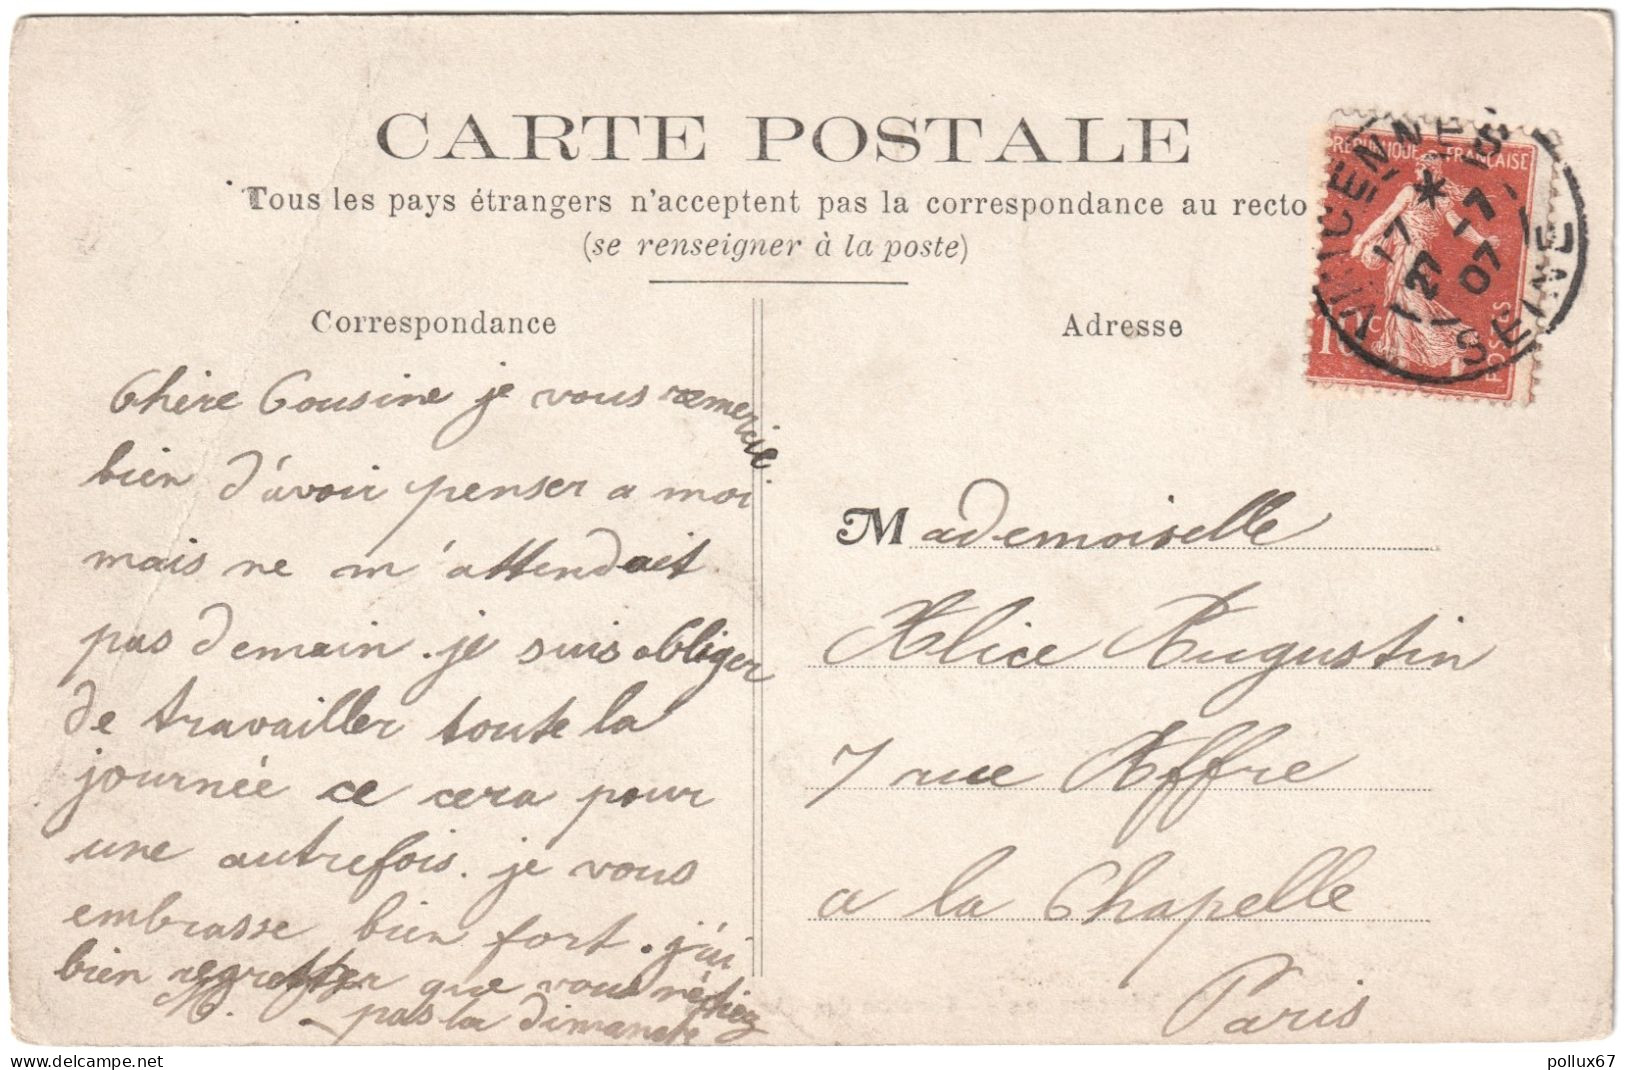 CARTE POSTALE
Tous les pays étrangers n'acceptent pas la correspondance au recto
(se renseigner à la poste)
Correspondance
Chère Cousine je vous remercie
bien d'avoir penser a moi
mais ne m'attendait
pas demain. je suis obliger
de travailler toute la
journée ce cera pour
une autrefois. je vous
embrasse bien fort. j'ai
bien regretter que vous n'étiez
M. pas la dimanche
Adresse
Mademoiselle
Alice Augustin
7 rue Affre
a la Chapelle
Paris
REPUBLIQUE FRANÇAISE
10c
POSTES
VINCENNES
SEINE
17 * 15
27 -7
07
delcampe.net
pollux67